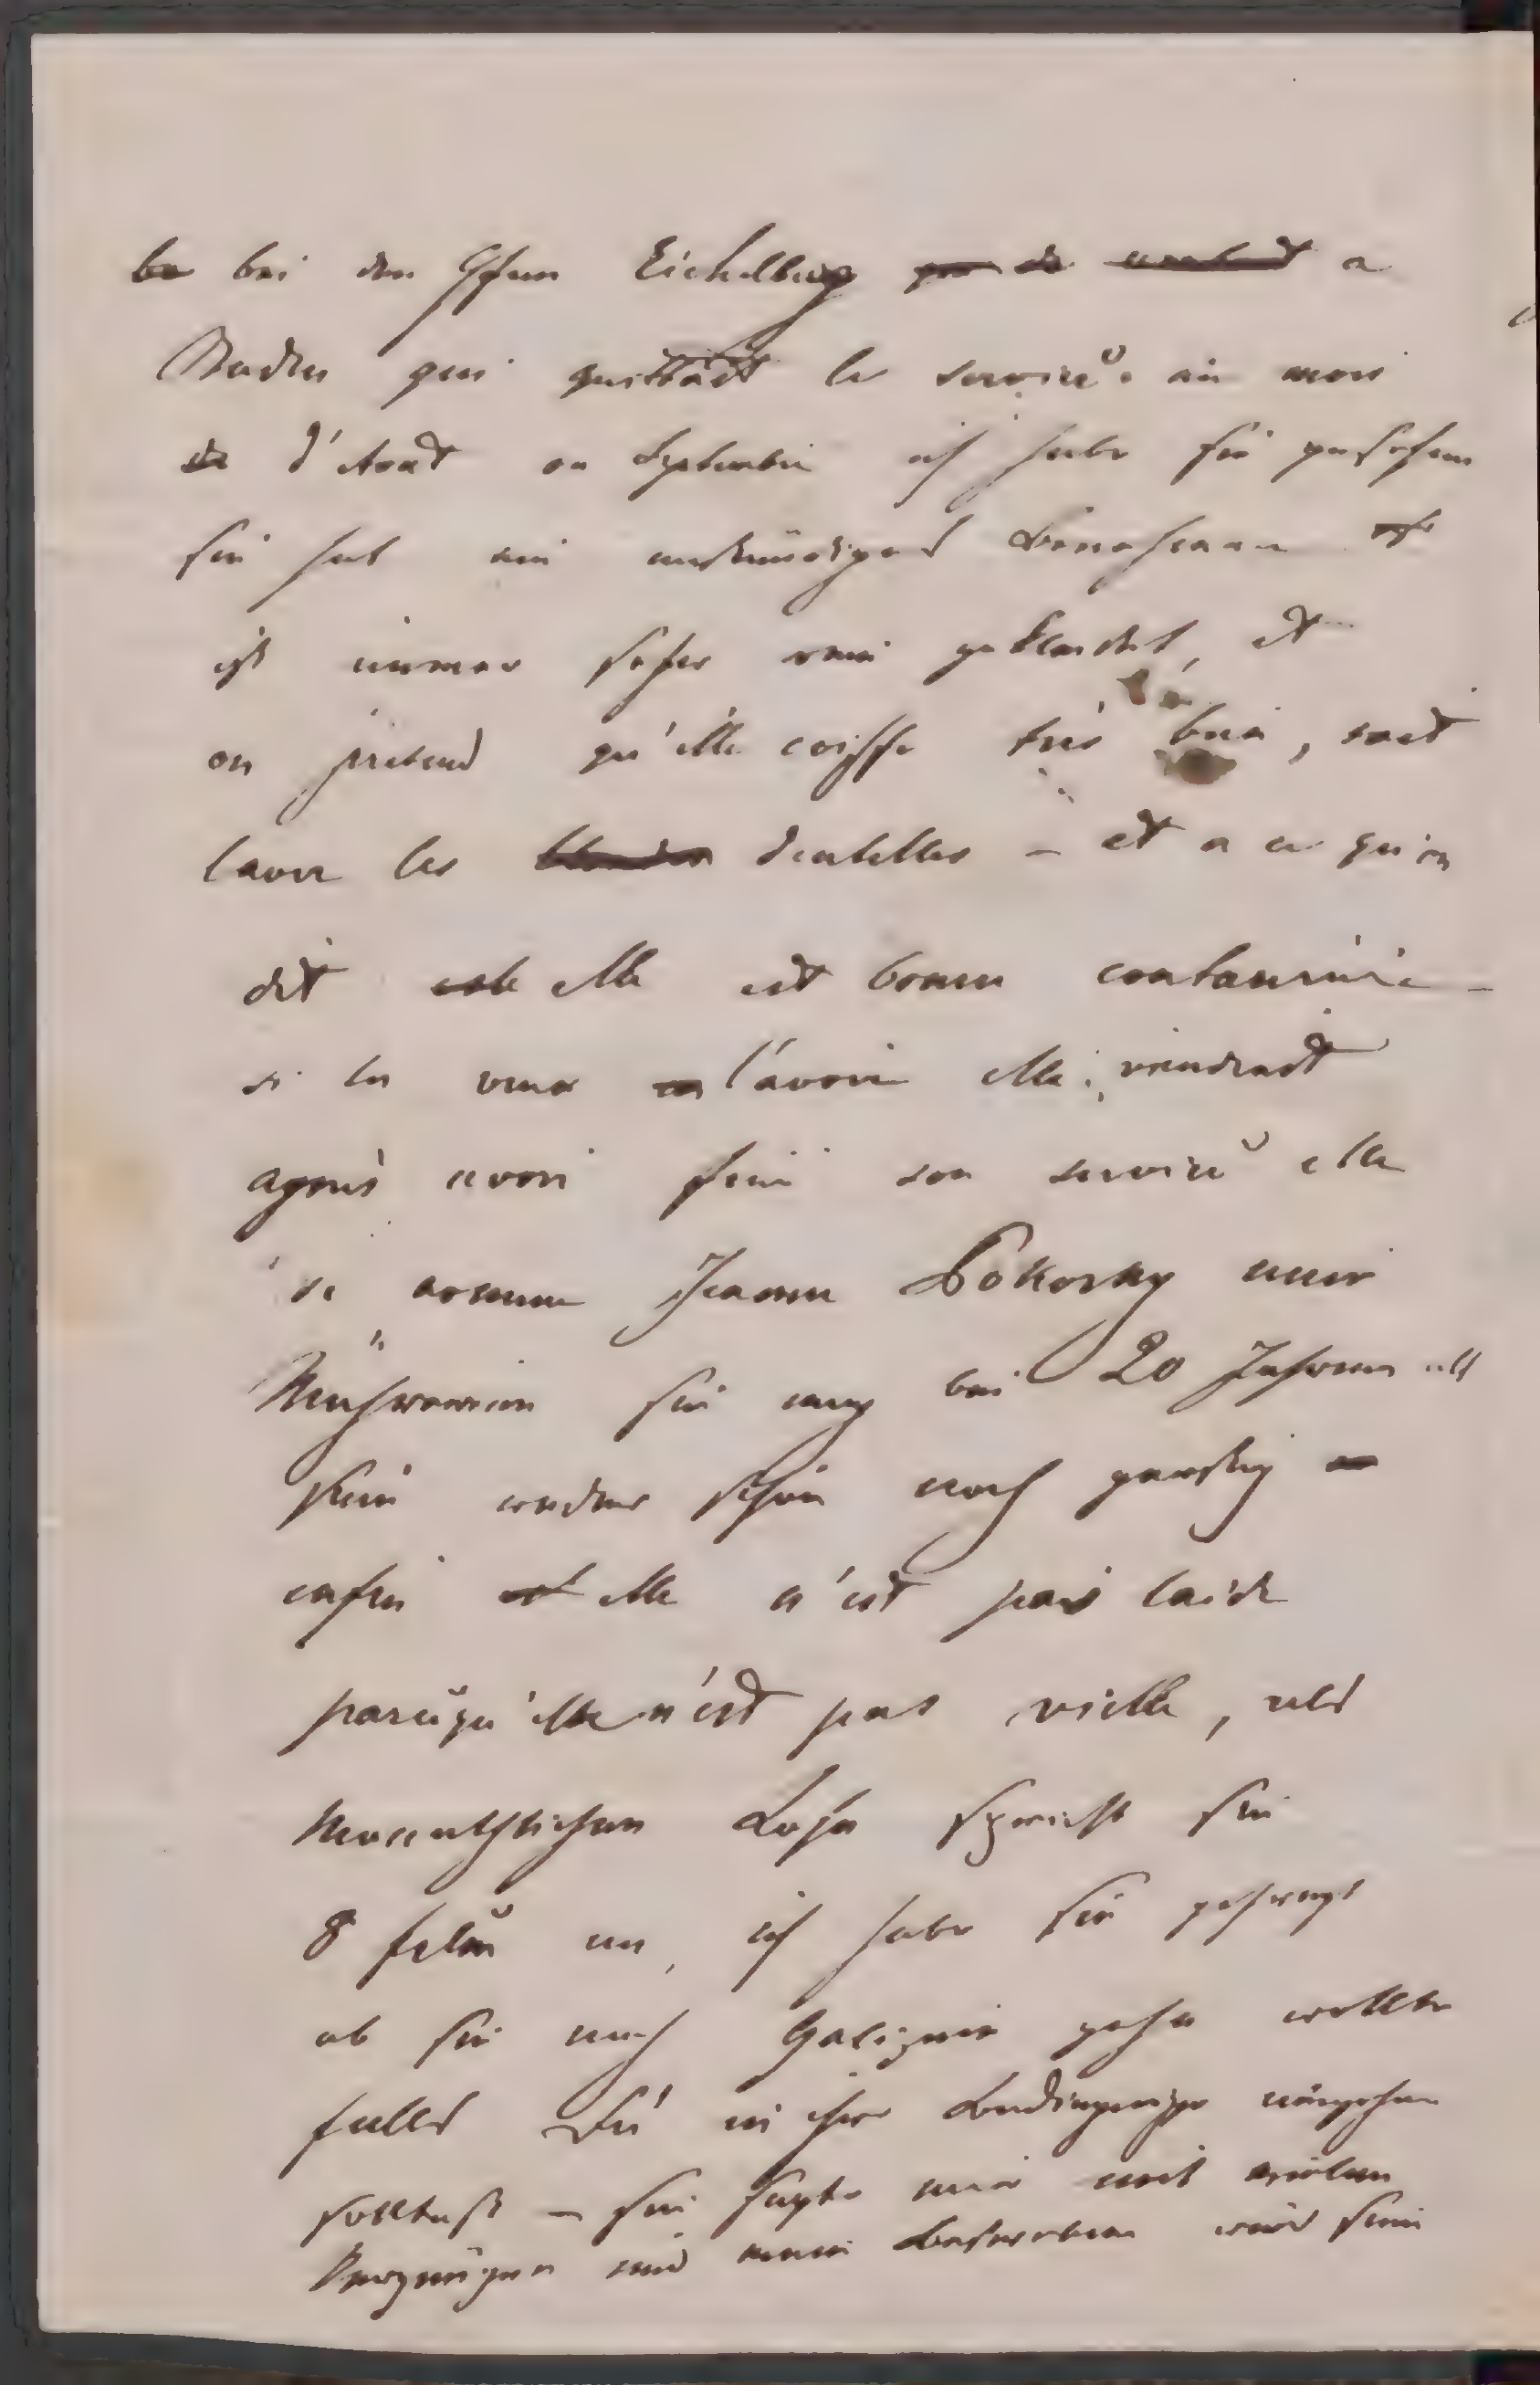 bei den Gfen Eichelburg a
Baden qui quittat le service au mois
d'Aout ou Septembre ich habe sie gesehen
sie hat ein anständiges Benehmen
ist immer sehr rein gekleidet, et
on pretend qu'elle coiffe très bien, sait
laver les dentelles – et a ce qu'on
dit elle est bonne couturière –
si tu veux l'avoir elle viendrait
après avoir fini son service elle
se nomme Jeanne Pokorny eine
Mährerin sie mag bei 20 Jahren alt
sein weder schön noch garstig
enfin elle n'est pas laide
parcequ'elle n'est pas vielle, als
Monathlichen Lohn spricht sie
8 fl an, ich habe sie gefragt
ob sie nach Galizien gehn wollte
falls Du in ihre Bedingnisse eingehen
solltest – sie sagte mir mit vielen
Vergnügen und mein Bestreben wird sein